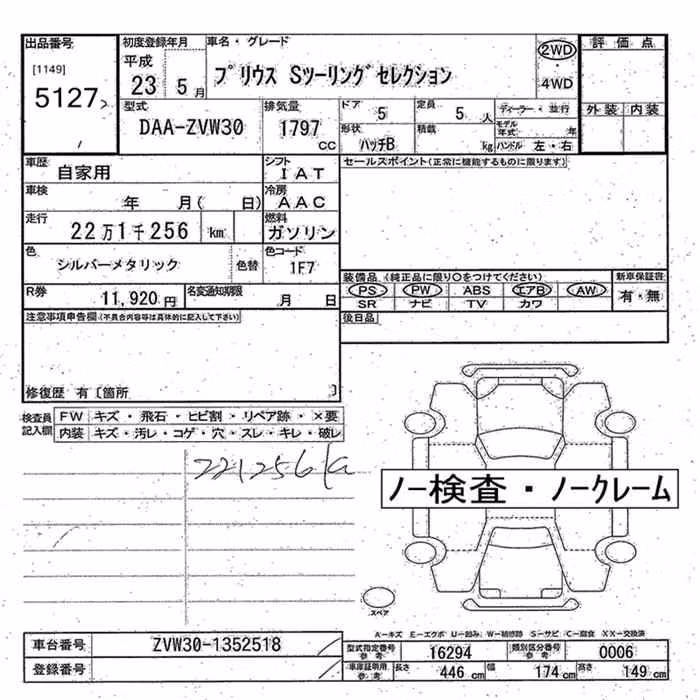 出品番号
[1149]
5127
初度登録年月
平成
23 5月
車名・グレード
プリウス Sツーリングセレクション
2WD
・
4WD
評価点
外装 内装
型式
DAA-ZVW30
排気量
1797 cc
ドア 5
定員 5 人
ディーラー・並行
モデル年式 年
形状 ハッチB
積載 kg
ハンドル 左・右
車歴
自家用
シフト
IAT
セールスポイント(正常に機能するものに限ります)
車検
年 月( 日)
冷房
AAC
走行
22万1千256 km
燃料
ガソリン
色
シルバーメタリック
色替
色コード
1F7
装備品 (純正品に限り○をつけてください)
新車保証書
PS PW ABS エアB AW
有・無
SR ナビ TV カワ
R券
11,920円
名変通知期限
月 日
後日品
注意事項申告欄(不具合内容等は具体的に記入して下さい)
修復歴 有〔箇所 〕
検査員記入欄
FW キズ・飛石・ヒビ割・リペア跡・×要
内装 キズ・汚レ・コゲ・穴・スレ・キレ・破レ
221256
ノー検査・ノークレーム
スペア
A-キズ E-エクボ U-凹み W-補修跡 S-サビ C-腐食 XX-交換済
車台番号 ZVW30-1352518
登録番号
型式指定番号 参考 16294
類別区分番号 参考 0006
車庫証明用 参考 長さ 446 cm 幅 174 cm 高さ 149 cm